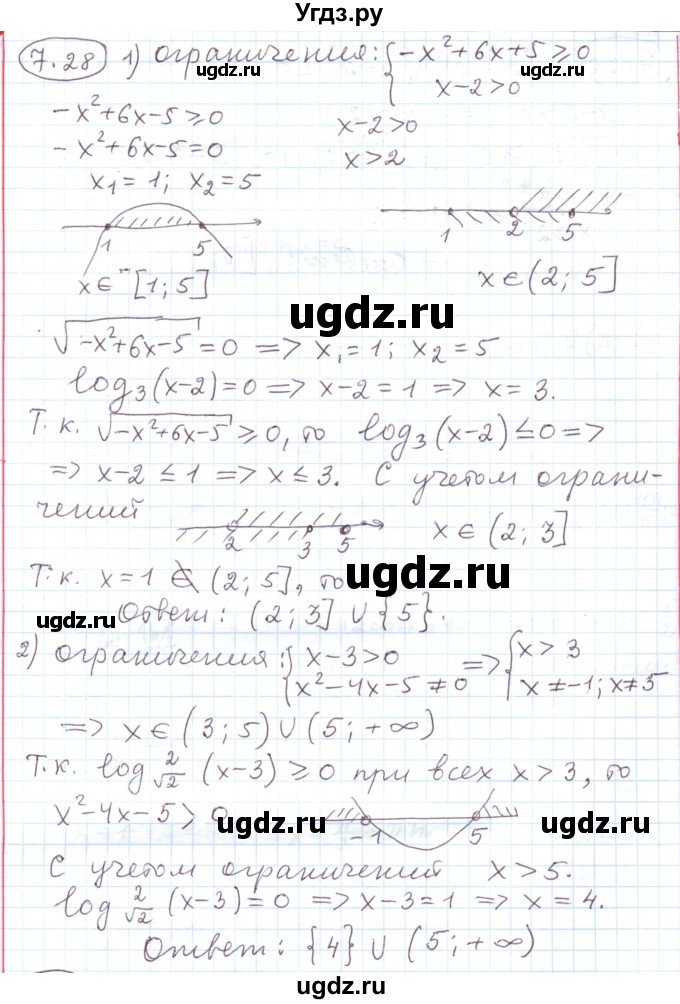 Угдз.ру
7.28 1) ограничения: { -x²+6x+5 ⩾ 0
x-2>0
-x²+6x-5 ⩾ 0
-x²+6x-5=0
x₁=1; x₂=5
x-2>0
x>2
1 5
x∈[1; 5]
1 2 5
x∈(2; 5]
ugdz.ru ugdz.ru
ugdz.ru ugdz.ru
ugdz.ru
√(-x²+6x-5)=0 => x₁=1; x₂=5
log₃(x-2)=0 => x-2=1 => x=3.
Т.к. √(-x²+6x-5) ⩾ 0, то log₃(x-2)≤0 =>
=> x-2≤1 => x≤3. С учетом ограни-
чений
2 3 5
x∈(2; 3]
ugdz.ru
Т.к. x=1 ∉ (2; 5], то
ugdz.ru ugdz.ru
Ответ: (2; 3] ∪ {5}.
2) ограничения: { x-3>0
x²-4x-5≠0
=> { x>3
x≠-1; x≠5
=> x∈(3; 5)∪(5; +∞)
Т.к. log 2/√2 (x-3) ⩾ 0 при всех x>3, то
x²-4x-5>0
-1 5
ugdz.ru ugdz.ru
С учетом ограничений x>5.
log 2/√2 (x-3)=0 => x-3=1 => x=4.
Ответ: {4} ∪ (5; +∞)
ugdz.ru